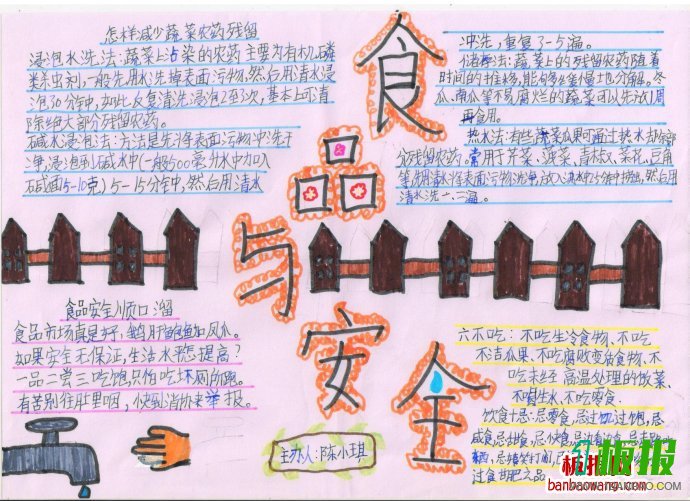 食品与安全
怎样减少蔬菜农药残留
浸泡水洗法:蔬菜上沾染的农药主要为有机磷
类杀虫剂,一般先用水洗掉表面污物,然后用清水浸
泡10分钟,如此反复清洗浸泡2至3次,基本上可清
除绝大部分残留农药。
碱水浸泡法:方法是先将表面污物冲洗干
净,浸泡到碱水中(一般500毫升水中加入
碱面5-10克)5-15分钟,然后用清水
冲洗,重复了-5遍。
储存法:蔬菜上的残留农药随着
时间的推移,能够缓慢地分解。冬
瓜、南瓜等不易腐烂的蔬菜可以先放1周
再食用。
热水法:有些蔬菜瓜果可通过热水去部
分残留农药。常用于芹菜、菠菜、青椒、菜花、豆角
等先用清水将表面污物洗净,放入沸水中2-5分钟捞出,然后用
清水洗一、二遍。
食品安全顺口溜
食品市场真是好,鹅肝鲍鱼加凤爪。
如果安全无保证,生活水平怎提高?
一品二尝三吃饱,只怕吃坏厕所跑。
有苦别往肚里咽,快到消协来举报。
六不吃:不吃生冷食物、不吃
不洁瓜果、不吃腐败变质食物、不
吃未经高温处理的饭菜、
不喝生水、不吃零食.
饮食十忌:忌零食,忌过饥过饱,忌
咸食忌甜食,忌快食,忌
过食肥
主办人:陈小琪
板报
banbaowang.com